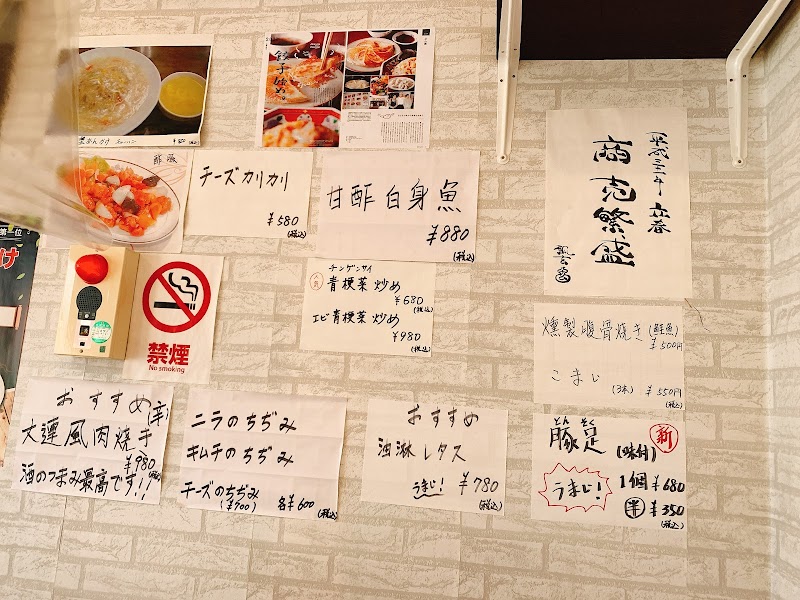 チーズカリカリ
¥580
(税込)
甘酢白身魚
¥880
(税込)
チンゲンサイ
人気
青梗菜炒め
¥680
(税込)
エビ青梗菜炒め
¥980
(税込)
餃子はめ。
酢豚
第一位
禁煙
No smoking
立春
商売繁盛
燻製腹骨焼き(鮭魚)
¥500円
こまい
(3本)
¥550円
(税込)
おすすめ
大連風肉焼き
(辛)
¥980
酒のつまみ最高です!!
ニラのちぢみ
キムチのちぢみ
チーズのちぢみ
(¥700)
各¥600
(税込)
おすすめ
油淋レタス
うまい!
¥780
(税込)
とん そく
豚足
新
(味付)
うまい!
1個¥680
半¥350
(税込)